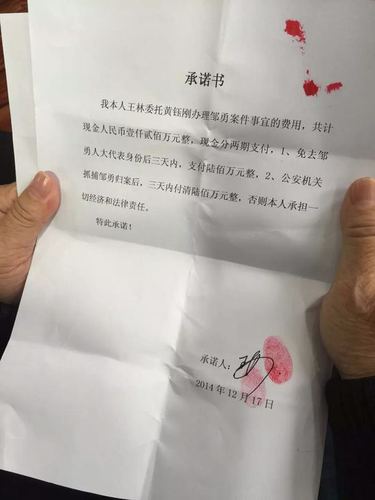 承诺书
我本人王林委托黄钰刚办理邹勇案件事宜的费用，共计
现金人民币壹仟贰佰万元整，现金分两期支付，1、免去邹
勇人大代表身份后三天内，支付陆佰万元整，2、公安机关
抓捕邹勇归案后，三天内付清陆佰万元整，否则本人承担一
切经济和法律责任。
特此承诺！
承诺人：
2014年12月17日